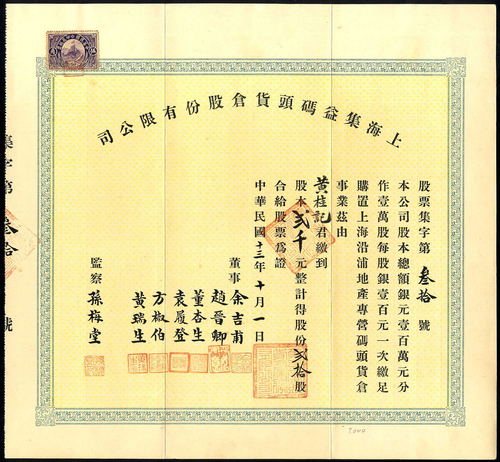 上海集益碼頭貨倉股份有限公司
股票集字第叁拾號
本公司股本總額銀元壹百萬元分
作壹萬股每股銀壹百元一次繳足
購置上海沿浦地產專營碼頭貨倉
事業茲由
黃桂記君繳到
股本貳千元整計得股份貳拾股
合給股票為證
中華民國十三年十月一日
董事余吉甫
趙晉卿
董杏生
袁履登
方椒伯
黃瑞生
監察孫梅堂
集字第叁拾號